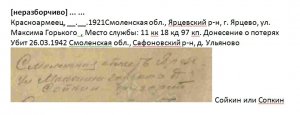 [неразборчиво] ... ...
Красноармеец, __.__.1921Смоленская обл., Ярцевский р-н, г. Ярцево, ул.
Максима Горького , Место службы: 11 кк 18 кд 97 кп. Донесение о потерях
Убит 26.03.1942 Смоленская обл., Сафоновский р-н, д. Ульяново
Смоленская область Ярц
ул Максима Горького
Сойкин
Сойкин или Сопкин